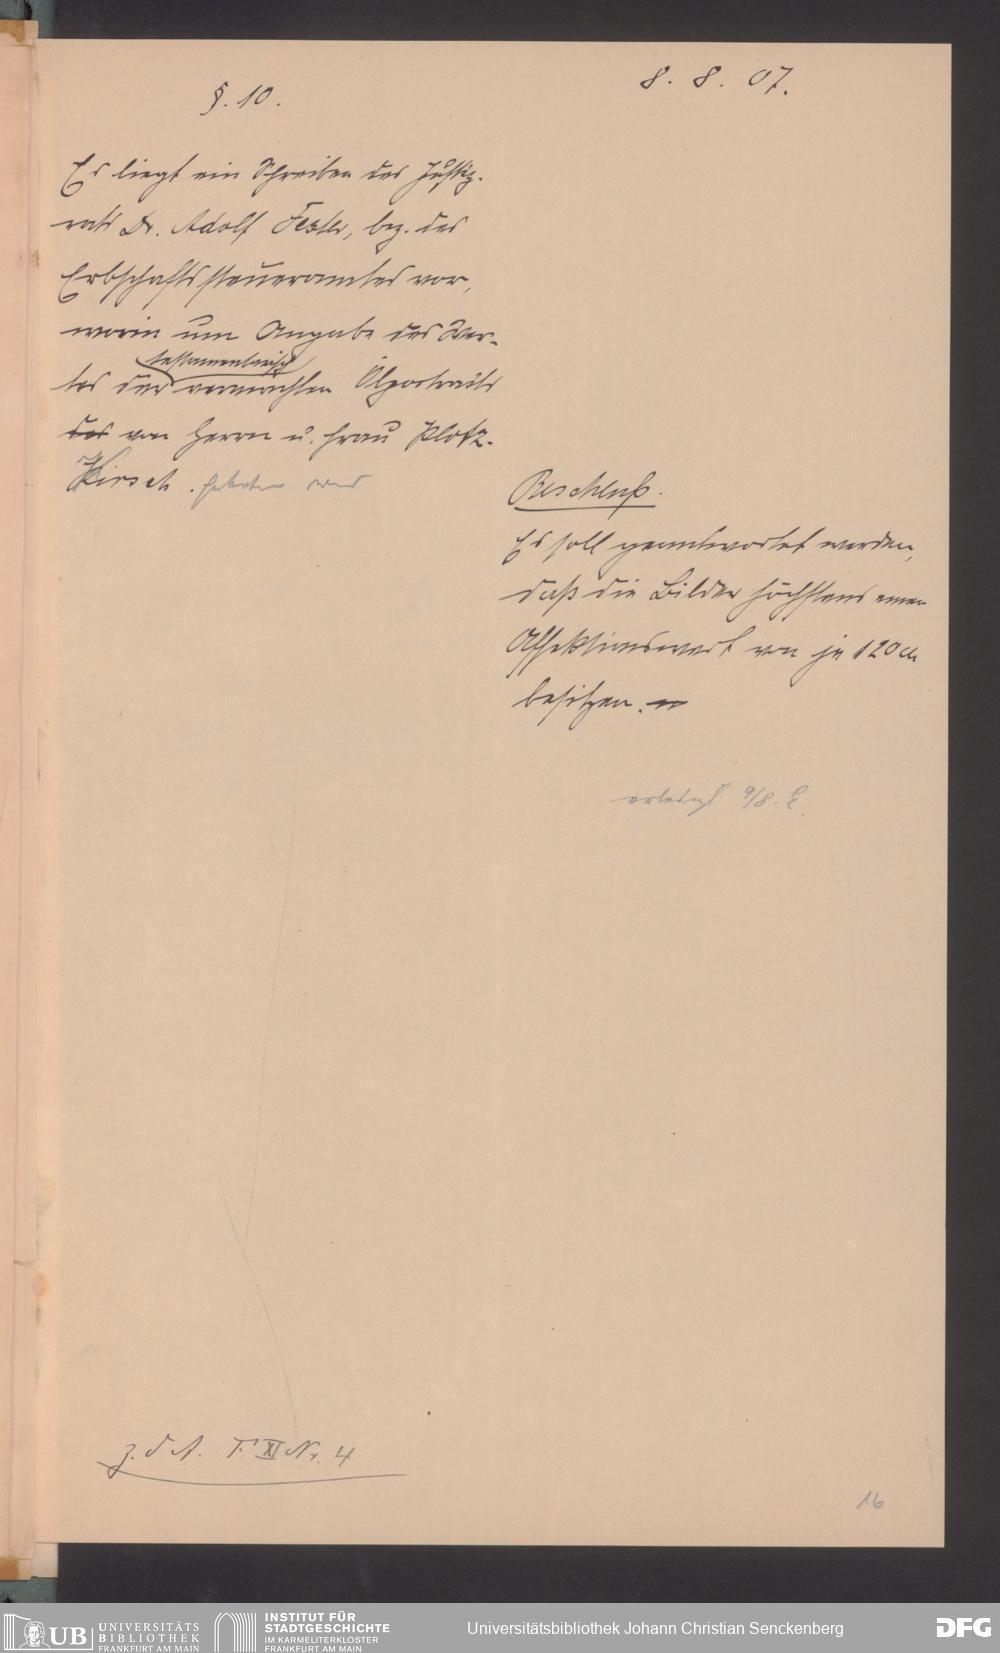 8. 8. 07.
§. 10.
Es liegt ein Schreiben des Justiz-
rats Dr. Adolf Fester, bez. des
Erbschaftssteueramtes vor,
worin um Angabe des Wer-
testamentarisch
tes der vermachten Ölportraits
des von Herrn u. Frau Plotz-
Kirsch. gebeten wird
Beschluß.
Es soll geantwortet werden,
daß die Bilder höchstens einen
Affektionswert von je 120 M
besitzen.
erledigt 9/8. E.
z. d A. T. XI Nr. 4
16
UB UNIVERSITÄTS
BIBLIOTHEK
FRANKFURT AM MAIN
INSTITUT FÜR
STADTGESCHICHTE
IM KARMELITERKLOSTER
FRANKFURT AM MAIN
Universitätsbibliothek Johann Christian Senckenberg
DFG